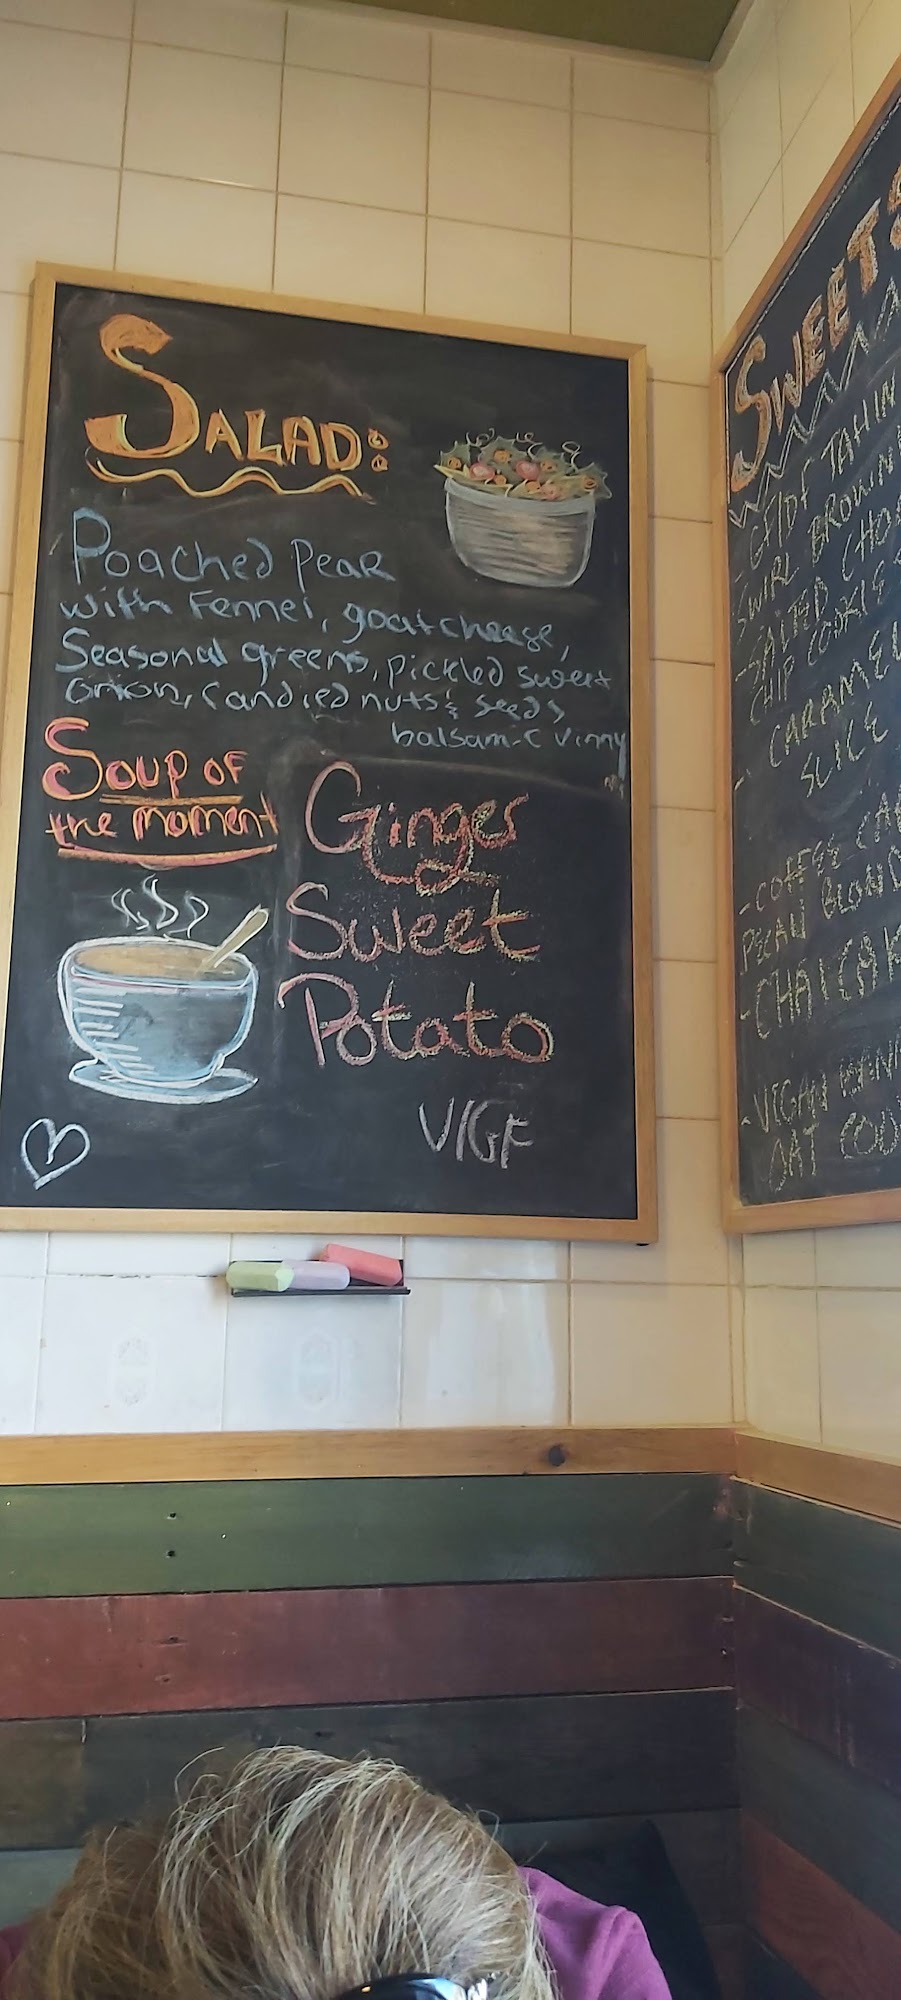 SALAD:
Poached Pear
with Fennel, goat cheese,
Seasonal greens, pickled sweet
onion, candied nuts & seeds
balsamic vinny
SOUP OF
the moment
Ginger
Sweet
Potato
V/GF
SWEETS
- GF/DF TAHIN
SWIRL BROWNI
- SALTED CHO
CHIP COOKIE
- CARAMEL
SLICE
- COFFEE CA
PECAN BLOND
- CHAI CAK
- VEGAN
OAT COO